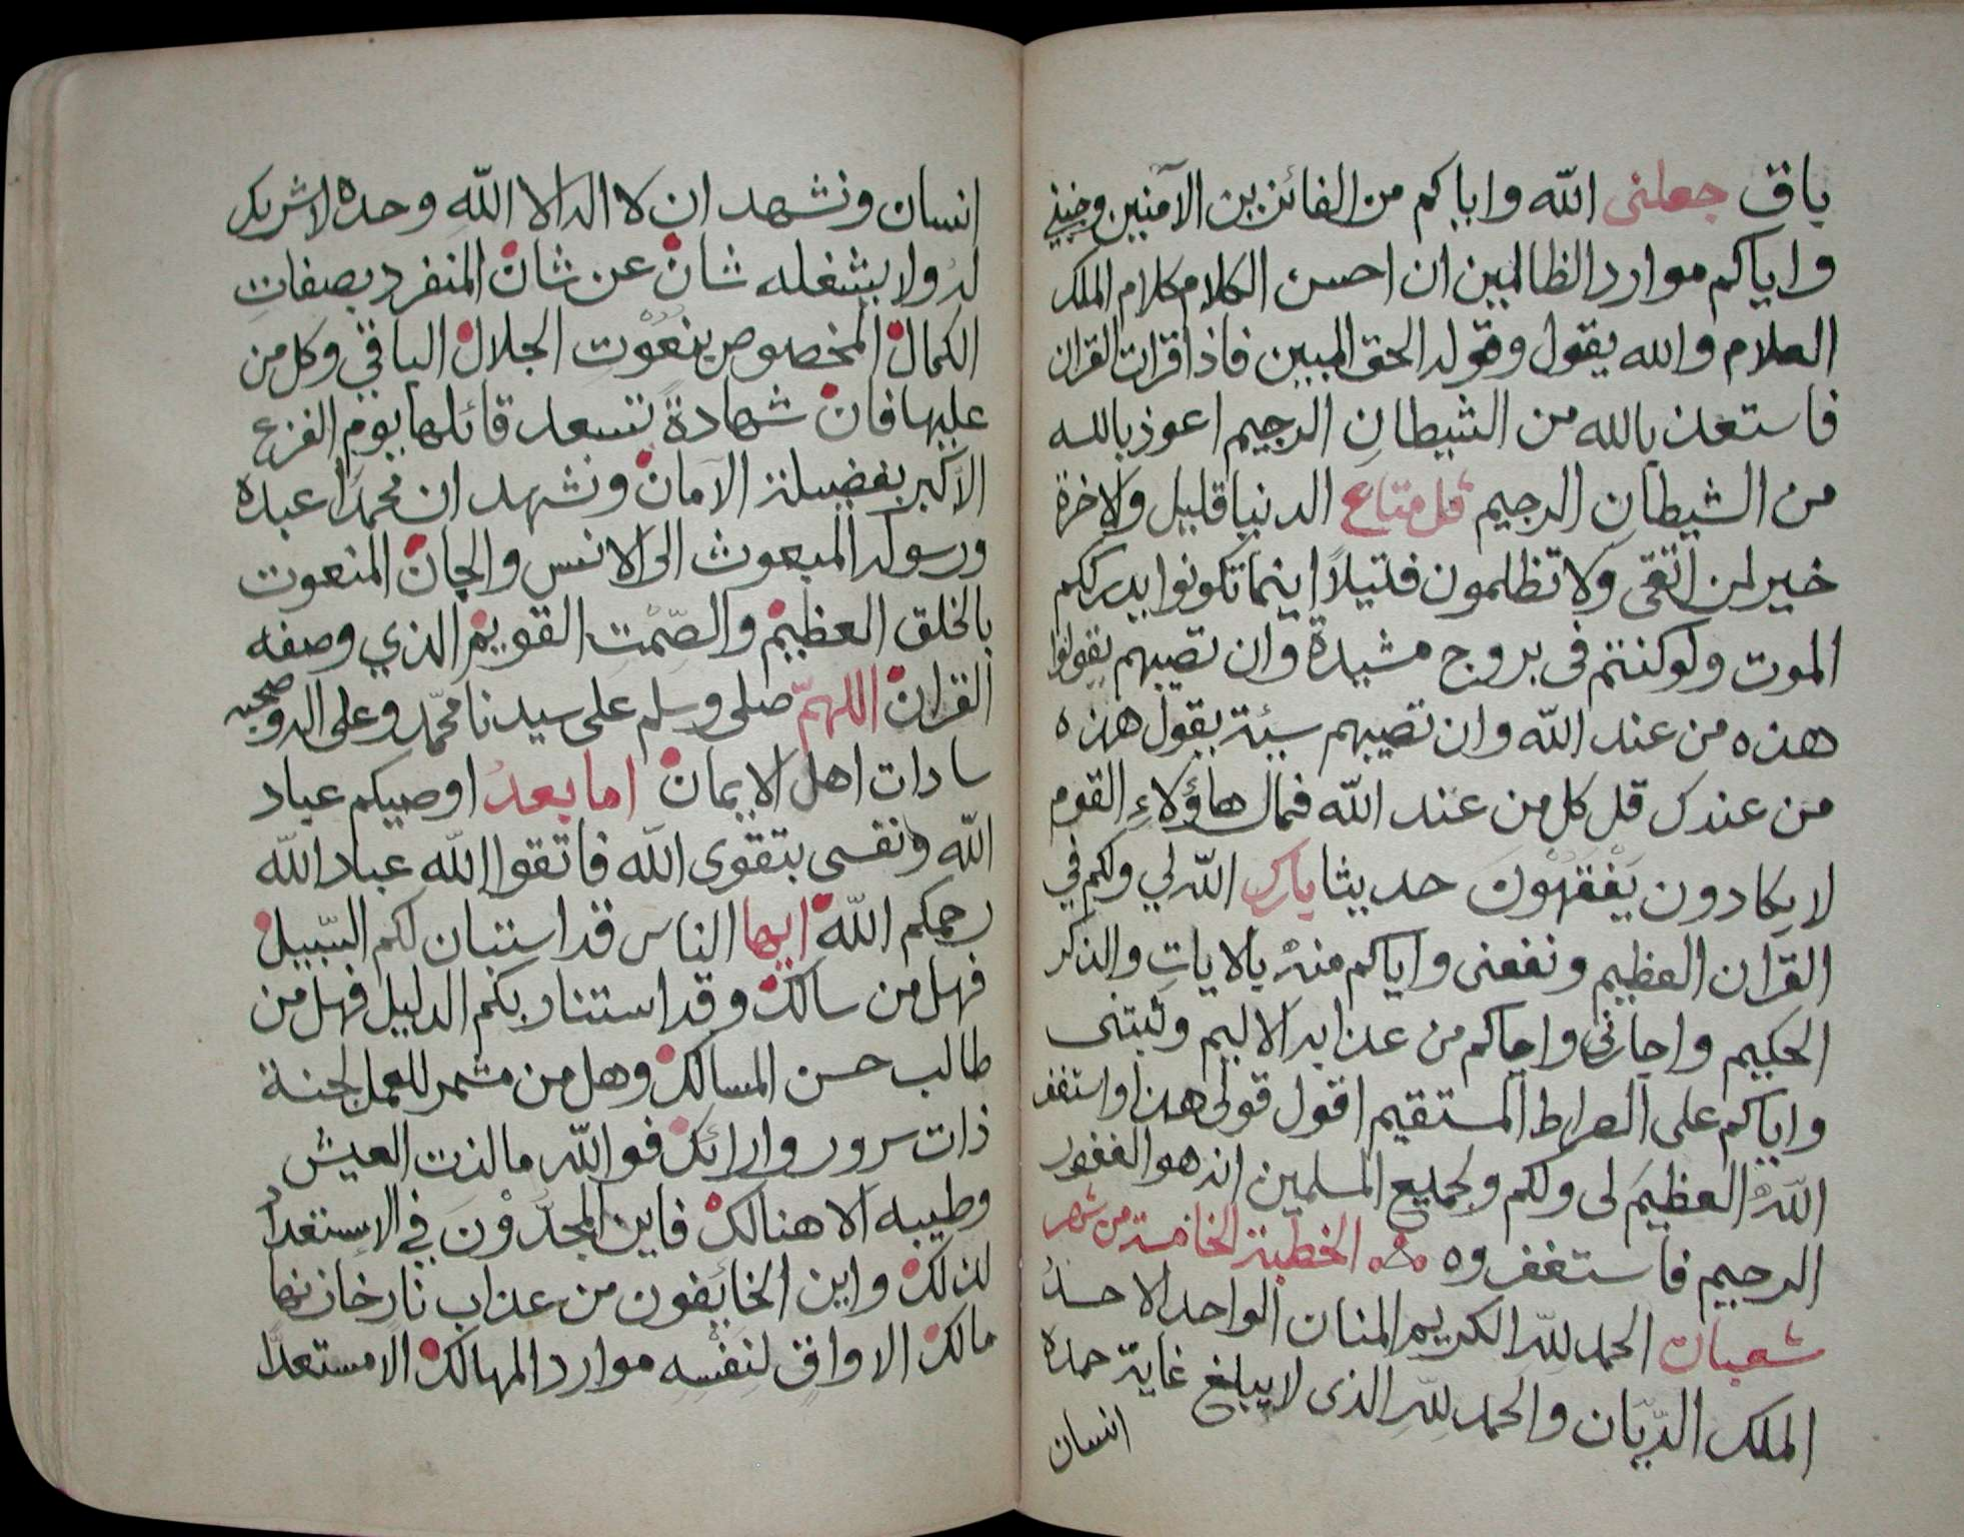 باق جعلنى الله واياكم من الفائزين الآمنين وجنبني
واياكم موارد الظالمين ان احسن الكلام كلام الملك
العلام والله يقول وقوله الحق المبين فاذا قرات القران
فاستعذ بالله من الشيطان الرجيم اعوذ بالله
من الشيطان الرجيم قل متاع الدنيا قليل والاخرة
خير لمن اتقى ولا تظلمون فتيلاً اينما تكونوا يدرككم
الموت ولو كنتم فى بروج مشيدة وان تصبهم يقولوا
هذه من عند الله وان تصيبهم سيئة يقول هذه
من عندك قل كل من عند الله فمال هاؤلاءِ القوم
لا يكادون يَفْقَهُوْنَ حديثا بارك الله لي ولكم في
القران العظيم ونفعنى واياكم منه بالايات والذكر
الحكيم واجارنى واجاكم من عذابه الاليم وثبتنى
واياكم على الصراط المستقيم اقول قولى هذا واستغفر
اللهَ العظيمَ لى ولكم ولجميع المسلمين انه هو الغفور
الرحيم فاستغفروه الخطبة الخامسة من شهر
شعبان الحمد لله الكريم المنان الواحد الاحد
الملك الديّان والحمد لله الذى لا يبلغ غاية حمده
انسان
انسان ونشهد ان لا اله الا الله وحده لا شريك
له ولا يشغله شان عن شان المنفرد بصفاتِ
الكمال المخصوص بنعُوْتِ الجلال الباقي وكل من
عليها فان شهادةً تسعد قائلها يوم الفزع
الاكبر بفضيلة الامان ونشهد ان محمداً عبده
ورسوله المبعوث الى الانس والجان المنعوت
بالخلق العظيم والصِّمْتِ القويم الذي وصفه
القران اللهمّ صلى وسلم على سيدنا محمّد وعلى اله وصحبه
سادات اهل الايمان اما بعدُ اوصيكم عباد
الله ونفسى بتقوى الله فاتقوا الله عباد الله
رحمكم الله ايها الناس قد استبان لكم السّبيل
فهل من سالك وقد استنار بكم الدليل فهل من
طالب حسن المسالك وهل من مشمر للعمل لجنة
ذات سرور وارائك فو الله ما لذت العيش
وطيبه الا هنالك فاين المجدّوْنَ في الاستعداد
لذلك واين الخائفون من عذاب نار خازنها
مالك الا واقٍ لنفسِه موارد المهالك الا مستعدًّا